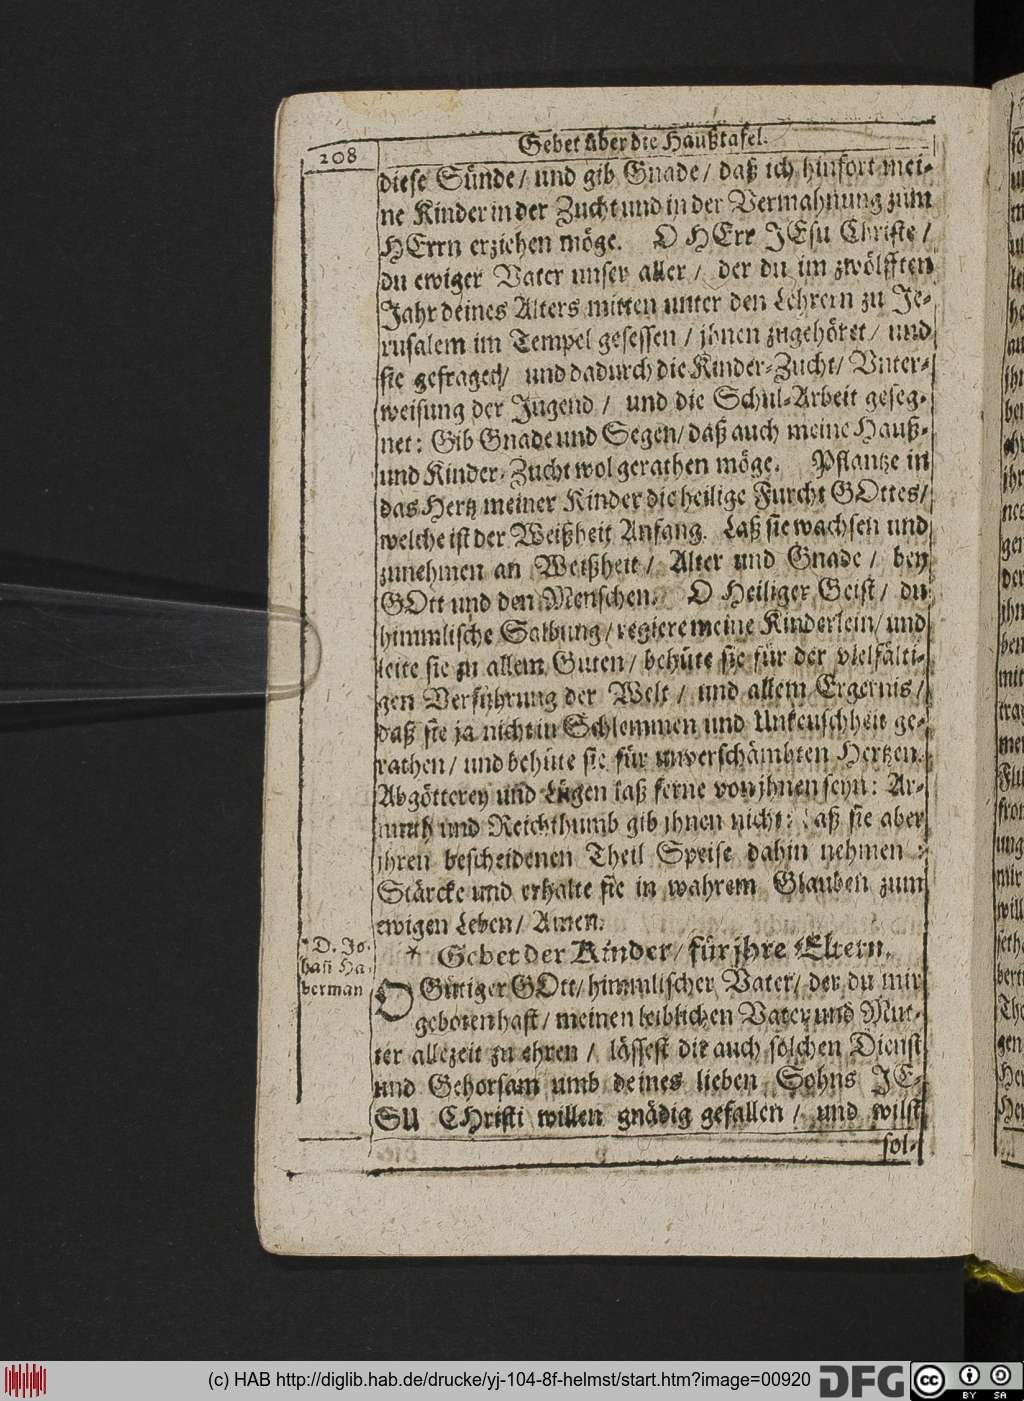 208
Gebet über die Haußtafel.
diese Sünde/ und gib Gnade/ daß ich hinfort mei-
ne Kinder in der Zucht und in der Vermahnung zum
HErrn erziehen möge. O HErr JEsu Christe/
du ewiger Vater unser aller/ der du im zwölfften
Jahr deines Alters mitten unter den Lehrern zu Je-
rusalem im Tempel gesessen/ jhnen zugehöret/ und
sie gefraget/ und dadurch die Kinder-Zucht/ Unter-
weisung der Jugend/ und die Schul-Arbeit geseg-
net: Gib Gnade und Segen/ daß auch meine Hauß-
und Kinder-Zucht wol gerathen möge. Pflantze in
das Hertz meiner Kinder die heilige Furcht GOttes/
welche ist der Weißheit Anfang. Laß sie wachsen und
zunehmen an Weißheit/ Alter und Gnade/ bey
GOtt und den Menschen. O Heiliger Geist/ du
himmlische Salbung/ regiere meine Kinderlein/ und
leite sie zu allem Guten/ behüte sie für der vielfälti-
gen Verführung der Welt/ und allem Ergernis/
daß sie ja nicht in Schlemmen und Unkeuschheit ge-
rathen/ und behüte sie für unverschämbten Hertzen.
Abgötterey und Lügen laß ferne von jhnen seyn: Ar-
muth und Reichthumb gib jhnen nicht: Laß sie aber
jhren bescheidenen Theil Speise dahin nehmen:
Stärcke und erhalte sie in wahrem Glauben zum
ewigen Leben/ Amen.
* D. Jo-
hañ Ha-
berman
* Gebet der Kinder/ für jhre Eltern.
O Gütiger GOtt/ himmlischer Vater/ der du mir
geboten hast/ meinen leiblichen Vater und Mut-
ter allezeit zu ehren/ lässest dir auch solchen Dienst
und Gehorsam umb deines lieben Sohns JE-
SU CHristi willen gnädig gefallen/ und wilst
sol-
(c) HAB http://diglib.hab.de/drucke/yj-104-8f-helmst/start.htm?image=00920
DFG
cc
BY SA